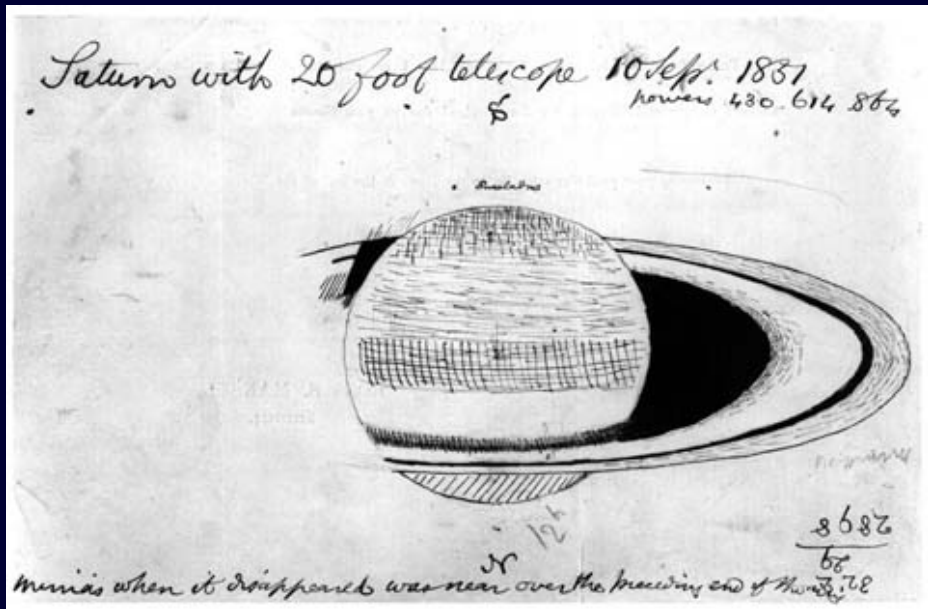 Saturn with 20 foot telescope 10 Sept. 1851
powers 430. 614 864
S
Enceladus
1/2 h
N
2898
29
Mimas when it disappeared was near over the preceding end of the